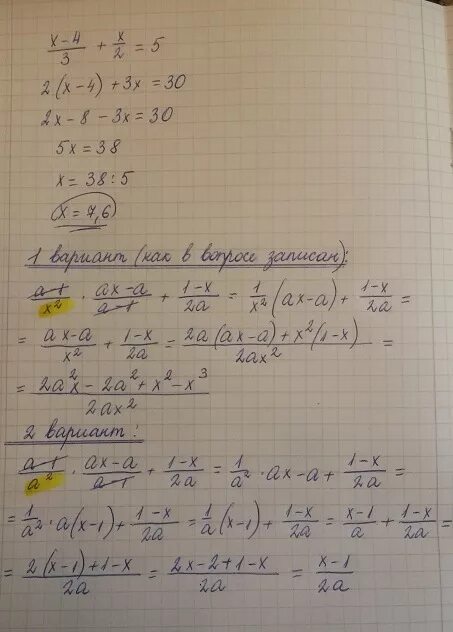 (x-4)/3 + x/2 = 5
2(x-4) + 3x = 30
2x - 8 - 3x = 30
5x = 38
x = 38 : 5
(x = 7,6)
1 вариант (как в вопросе записан):
(a-1)/x² · (ax-a)/(a-1) + (1-x)/2a = 1/x² (ax-a) + (1-x)/2a =
= (ax-a)/x² + (1-x)/2a = (2a(ax-a) + x²(1-x))/2ax² =
= (2a²x - 2a² + x² - x³)/2ax²
2 вариант:
(a-1)/a² · (ax-a)/(a-1) + (1-x)/2a = 1/a² · ax-a + (1-x)/2a =
= 1/a² · a(x-1) + (1-x)/2a = 1/a (x-1) + (1-x)/2a = (x-1)/a + (1-x)/2a =
= (2(x-1)+1-x)/2a = (2x-2+1-x)/2a = (x-1)/2a